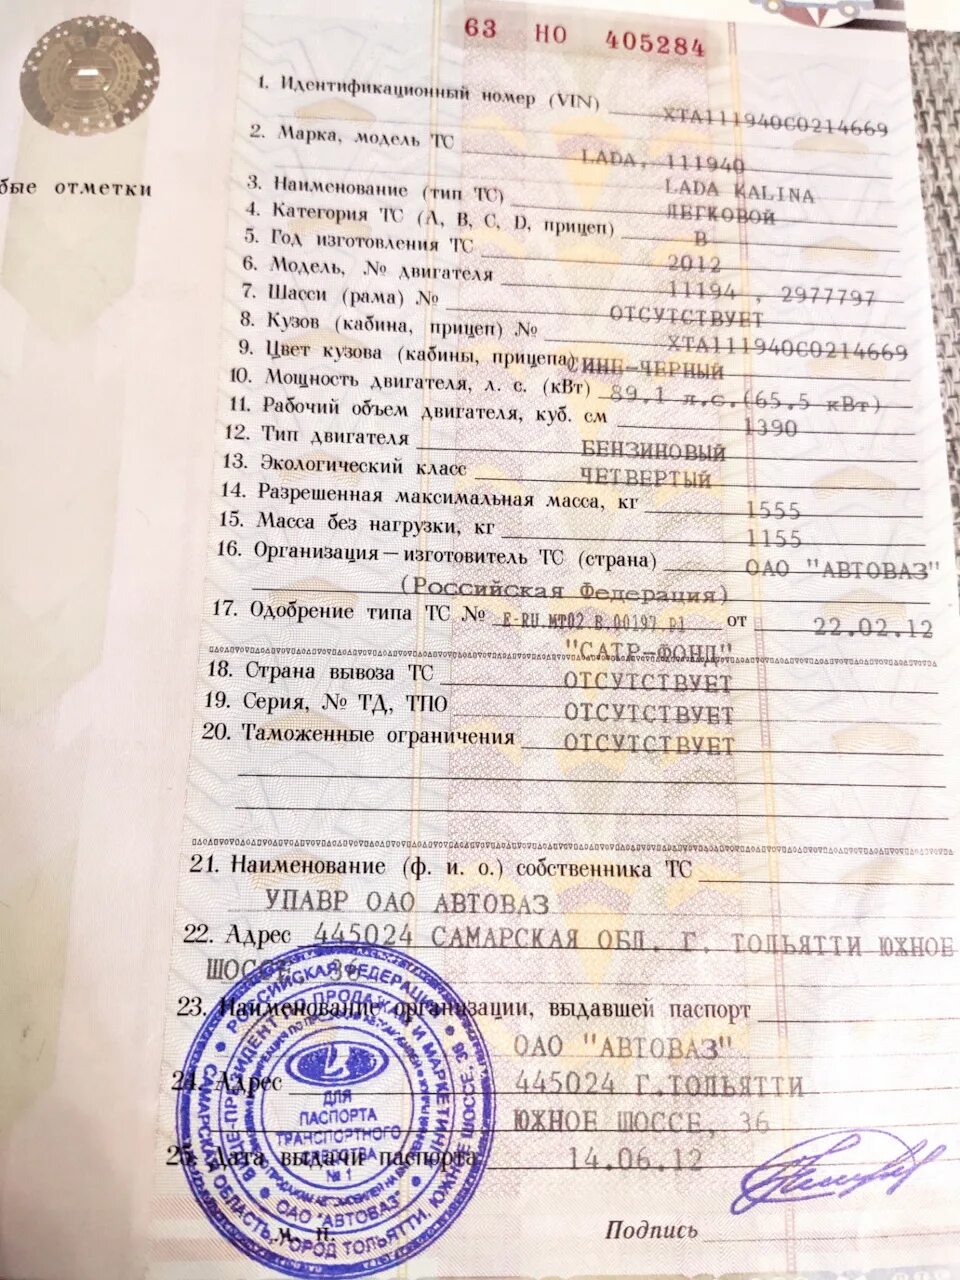 63 НО 405284
бые отметки
1. Идентификационный номер (VIN) ХТА111940С0214669
2. Марка, модель ТС LADA, 111940
LADA KALINA
3. Наименование (тип ТС) ЛЕГКОВОЙ
4. Категория ТС (A, B, C, D, прицеп) B
5. Год изготовления ТС 2012
6. Модель, № двигателя 11194 , 2977797
7. Шасси (рама) № ОТСУТСТВУЕТ
8. Кузов (кабина, прицеп) № ХТА111940С0214669
9. Цвет кузова (кабины, прицепа) СИНЕ-ЧЕРНЫЙ
10. Мощность двигателя, л. с. (кВт) 89,1 л.с.(65,5 кВт)
11. Рабочий объем двигателя, куб. см 1390
12. Тип двигателя БЕНЗИНОВЫЙ
13. Экологический класс ЧЕТВЕРТЫЙ
14. Разрешенная максимальная масса, кг 1555
15. Масса без нагрузки, кг 1155
16. Организация—изготовитель ТС (страна) ОАО "АВТОВАЗ"
(Российская Федерация)
17. Одобрение типа ТС № E-RU.MT02.B.00197.P1 от 22.02.12
"САТР-ФОНД"
18. Страна вывоза ТС ОТСУТСТВУЕТ
19. Серия, № ТД, ТПО ОТСУТСТВУЕТ
20. Таможенные ограничения ОТСУТСТВУЕТ
21. Наименование (ф. и. о.) собственника ТС
УПАВР ОАО АВТОВАЗ
22. Адрес 445024 САМАРСКАЯ ОБЛ. Г. ТОЛЬЯТТИ ЮЖНОЕ
ШОССЕ, 36
23. Наименование организации, выдавшей паспорт
ОАО "АВТОВАЗ"
24. Адрес 445024 Г.ТОЛЬЯТТИ
ЮЖНОЕ ШОССЕ, 36
25. Дата выдачи паспорта 14.06.12
М. П.
Подпись
РОССИЙСКАЯ ФЕДЕРАЦИЯ
САМАРСКАЯ ОБЛАСТЬ, ГОРОД ТОЛЬЯТТИ, ЮЖНОЕ ШОССЕ, 36
ВИЦЕ-ПРЕЗИДЕНТ ПО ПРОДАЖАМ И МАРКЕТИНГУ
ОАО "АВТОВАЗ"
ДЛЯ
ПАСПОРТА
ТРАНСПОРТНОГО
СРЕДСТВА
№ 1